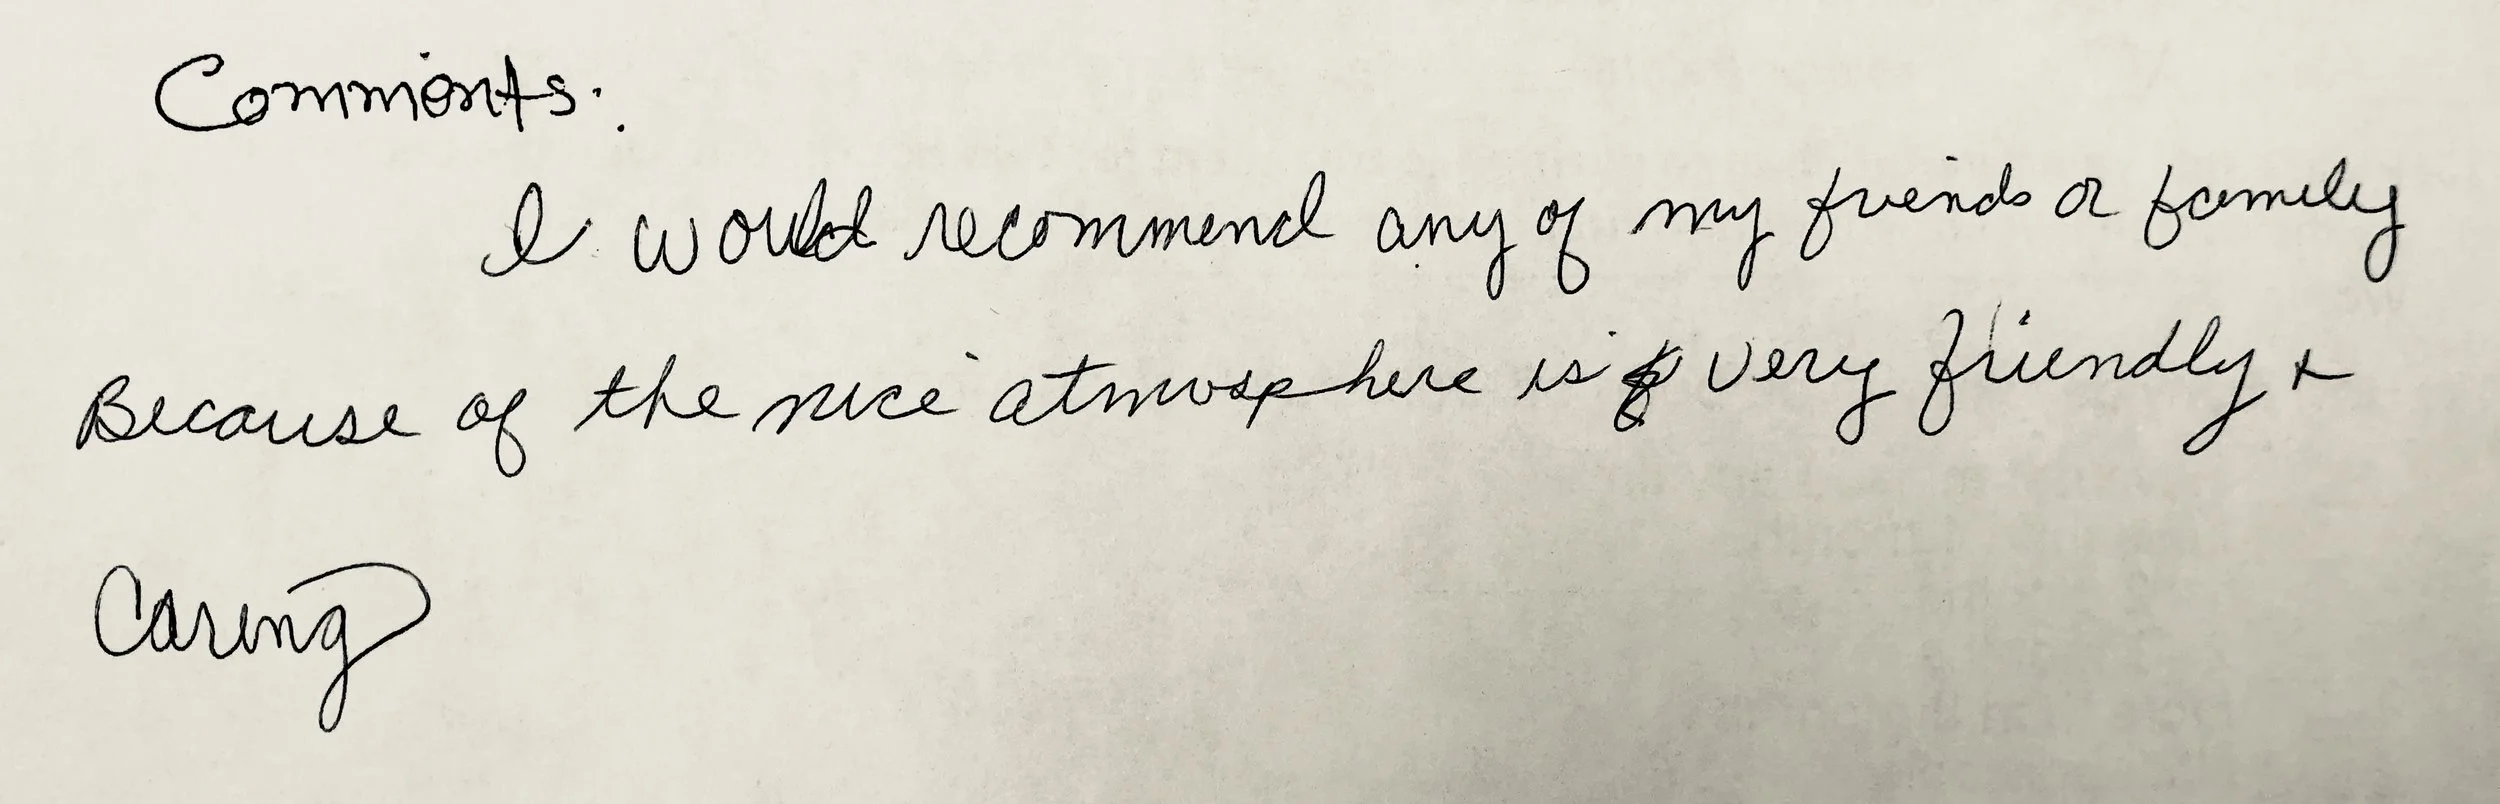 Comments:
I would recommend any of my friends or family
Because of the nice atmosphere is very friendly +
Caring